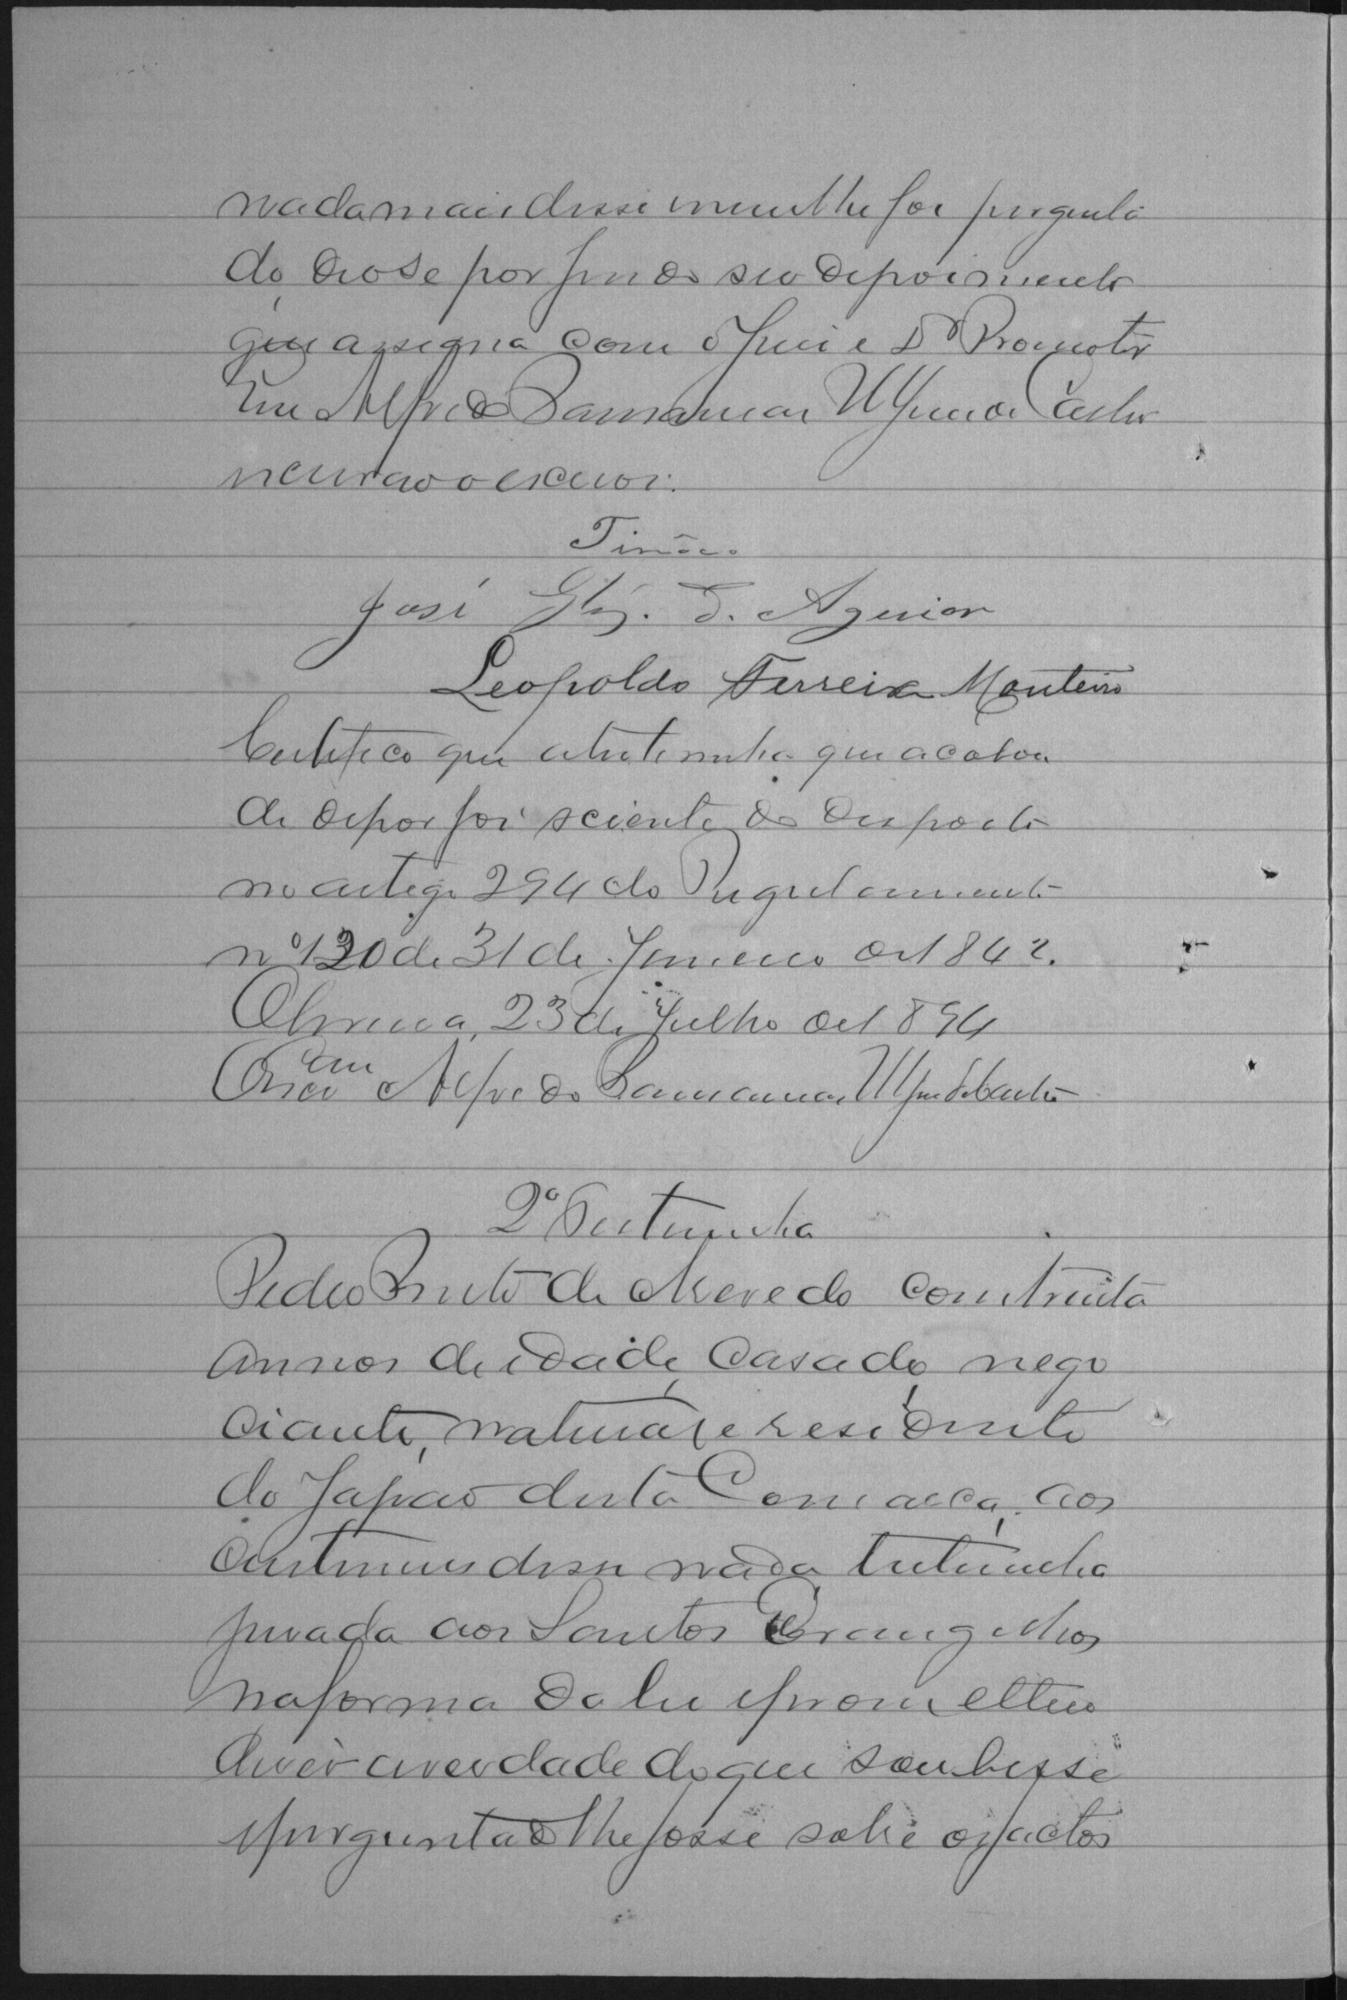 nada mais disse nem lhe foi pergunta
do, deo-se por findo seo depoimento
que assigna com o Juiz e Dr Promotor
Eu Alfredo
escrivão o escrevi.
Tinôco
José Glz. d. Aguiar
Leopoldo Ferreira Monteiro
Certifico que a testemunha que acabou
de depor foi sciente do disposto
no artigo 294 do Regulamento
nº 120 de 31 de Janeiro de 1842.
23 de Julho de 1894
O Escram Alfredo
2ª Testemunha
Pedro Bento de Azevedo com trinta
annos de idade, casado, nego
ciante, natural e residente
do Japão desta Comarca, aos
custumes disse nada testemunha
jurada aos Santos Evangelhos
na forma da lei e prometteu
dizer a verdade do que soubesse
e perguntado lhe fosse sobre os factos